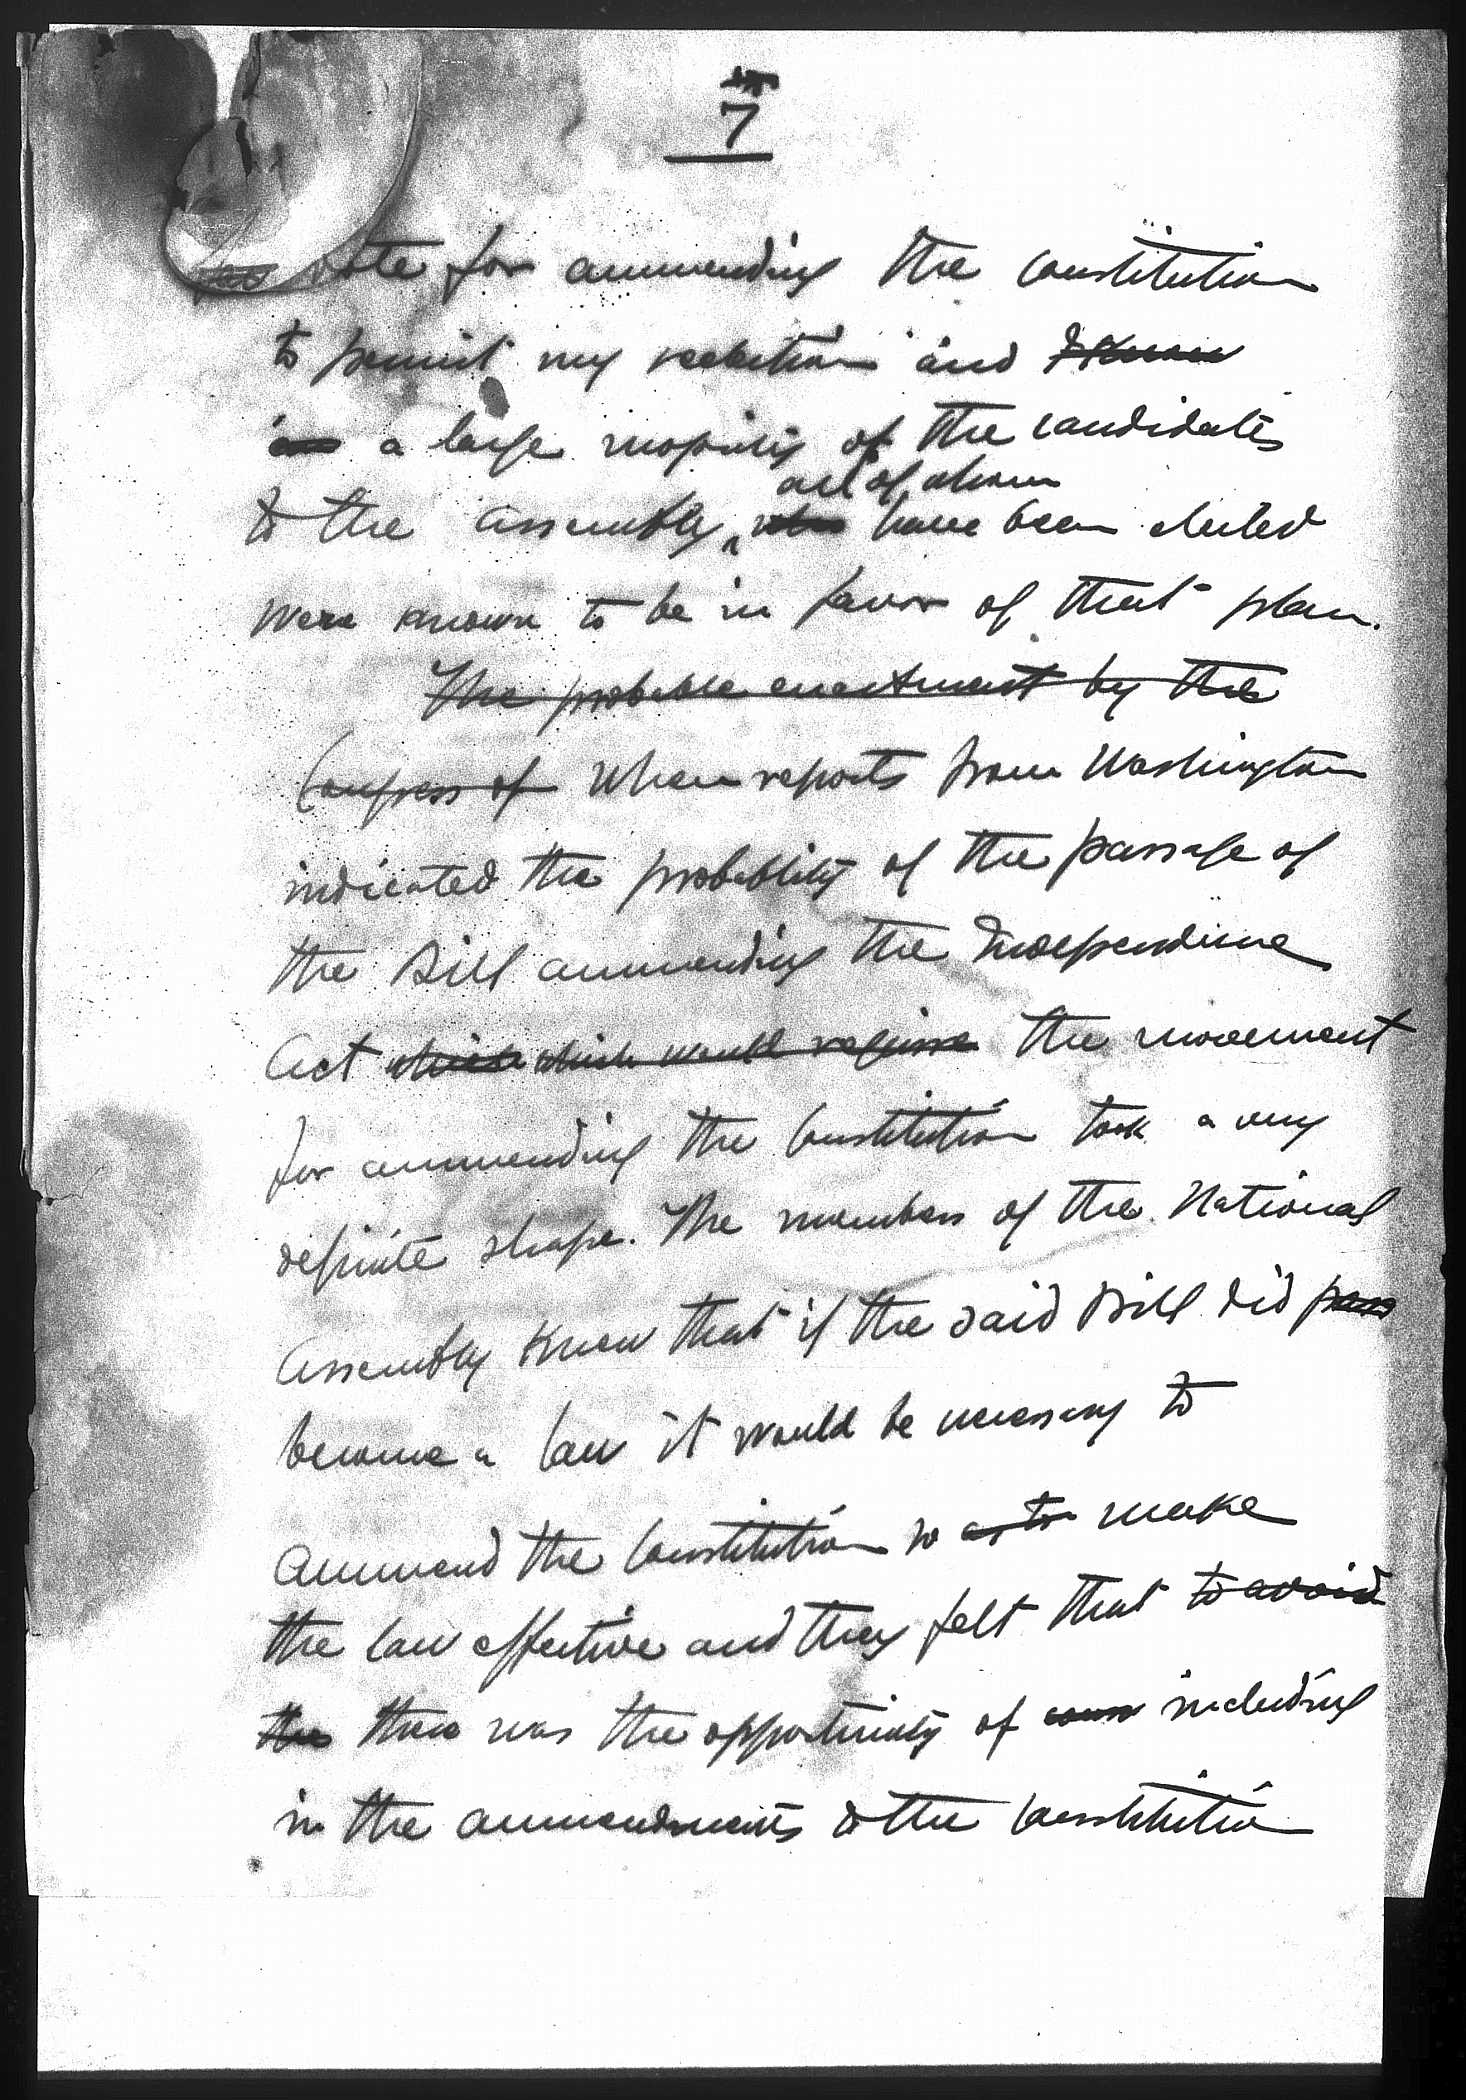 7
vote for ammending the constitution
to permit my reelection and I know
a large majority of the candidates
all of whom
to the Assembly, who have been elected
were known to be in favor of that plan.
The probable enactment by the
Congress of When reports from Washington
indicated the probability of the passage of
the Bill ammending the Independence
Act which which would require the movement
for ammending the Constitution took a very
definite shape. The members of the National
Assembly knew that if the said Bill did pass
become a law it would be necessary to
ammend the Constitution so as to make
the law effective and they felt that to avoid
the there was the opportunity of including
in the ammendments to the Constitution